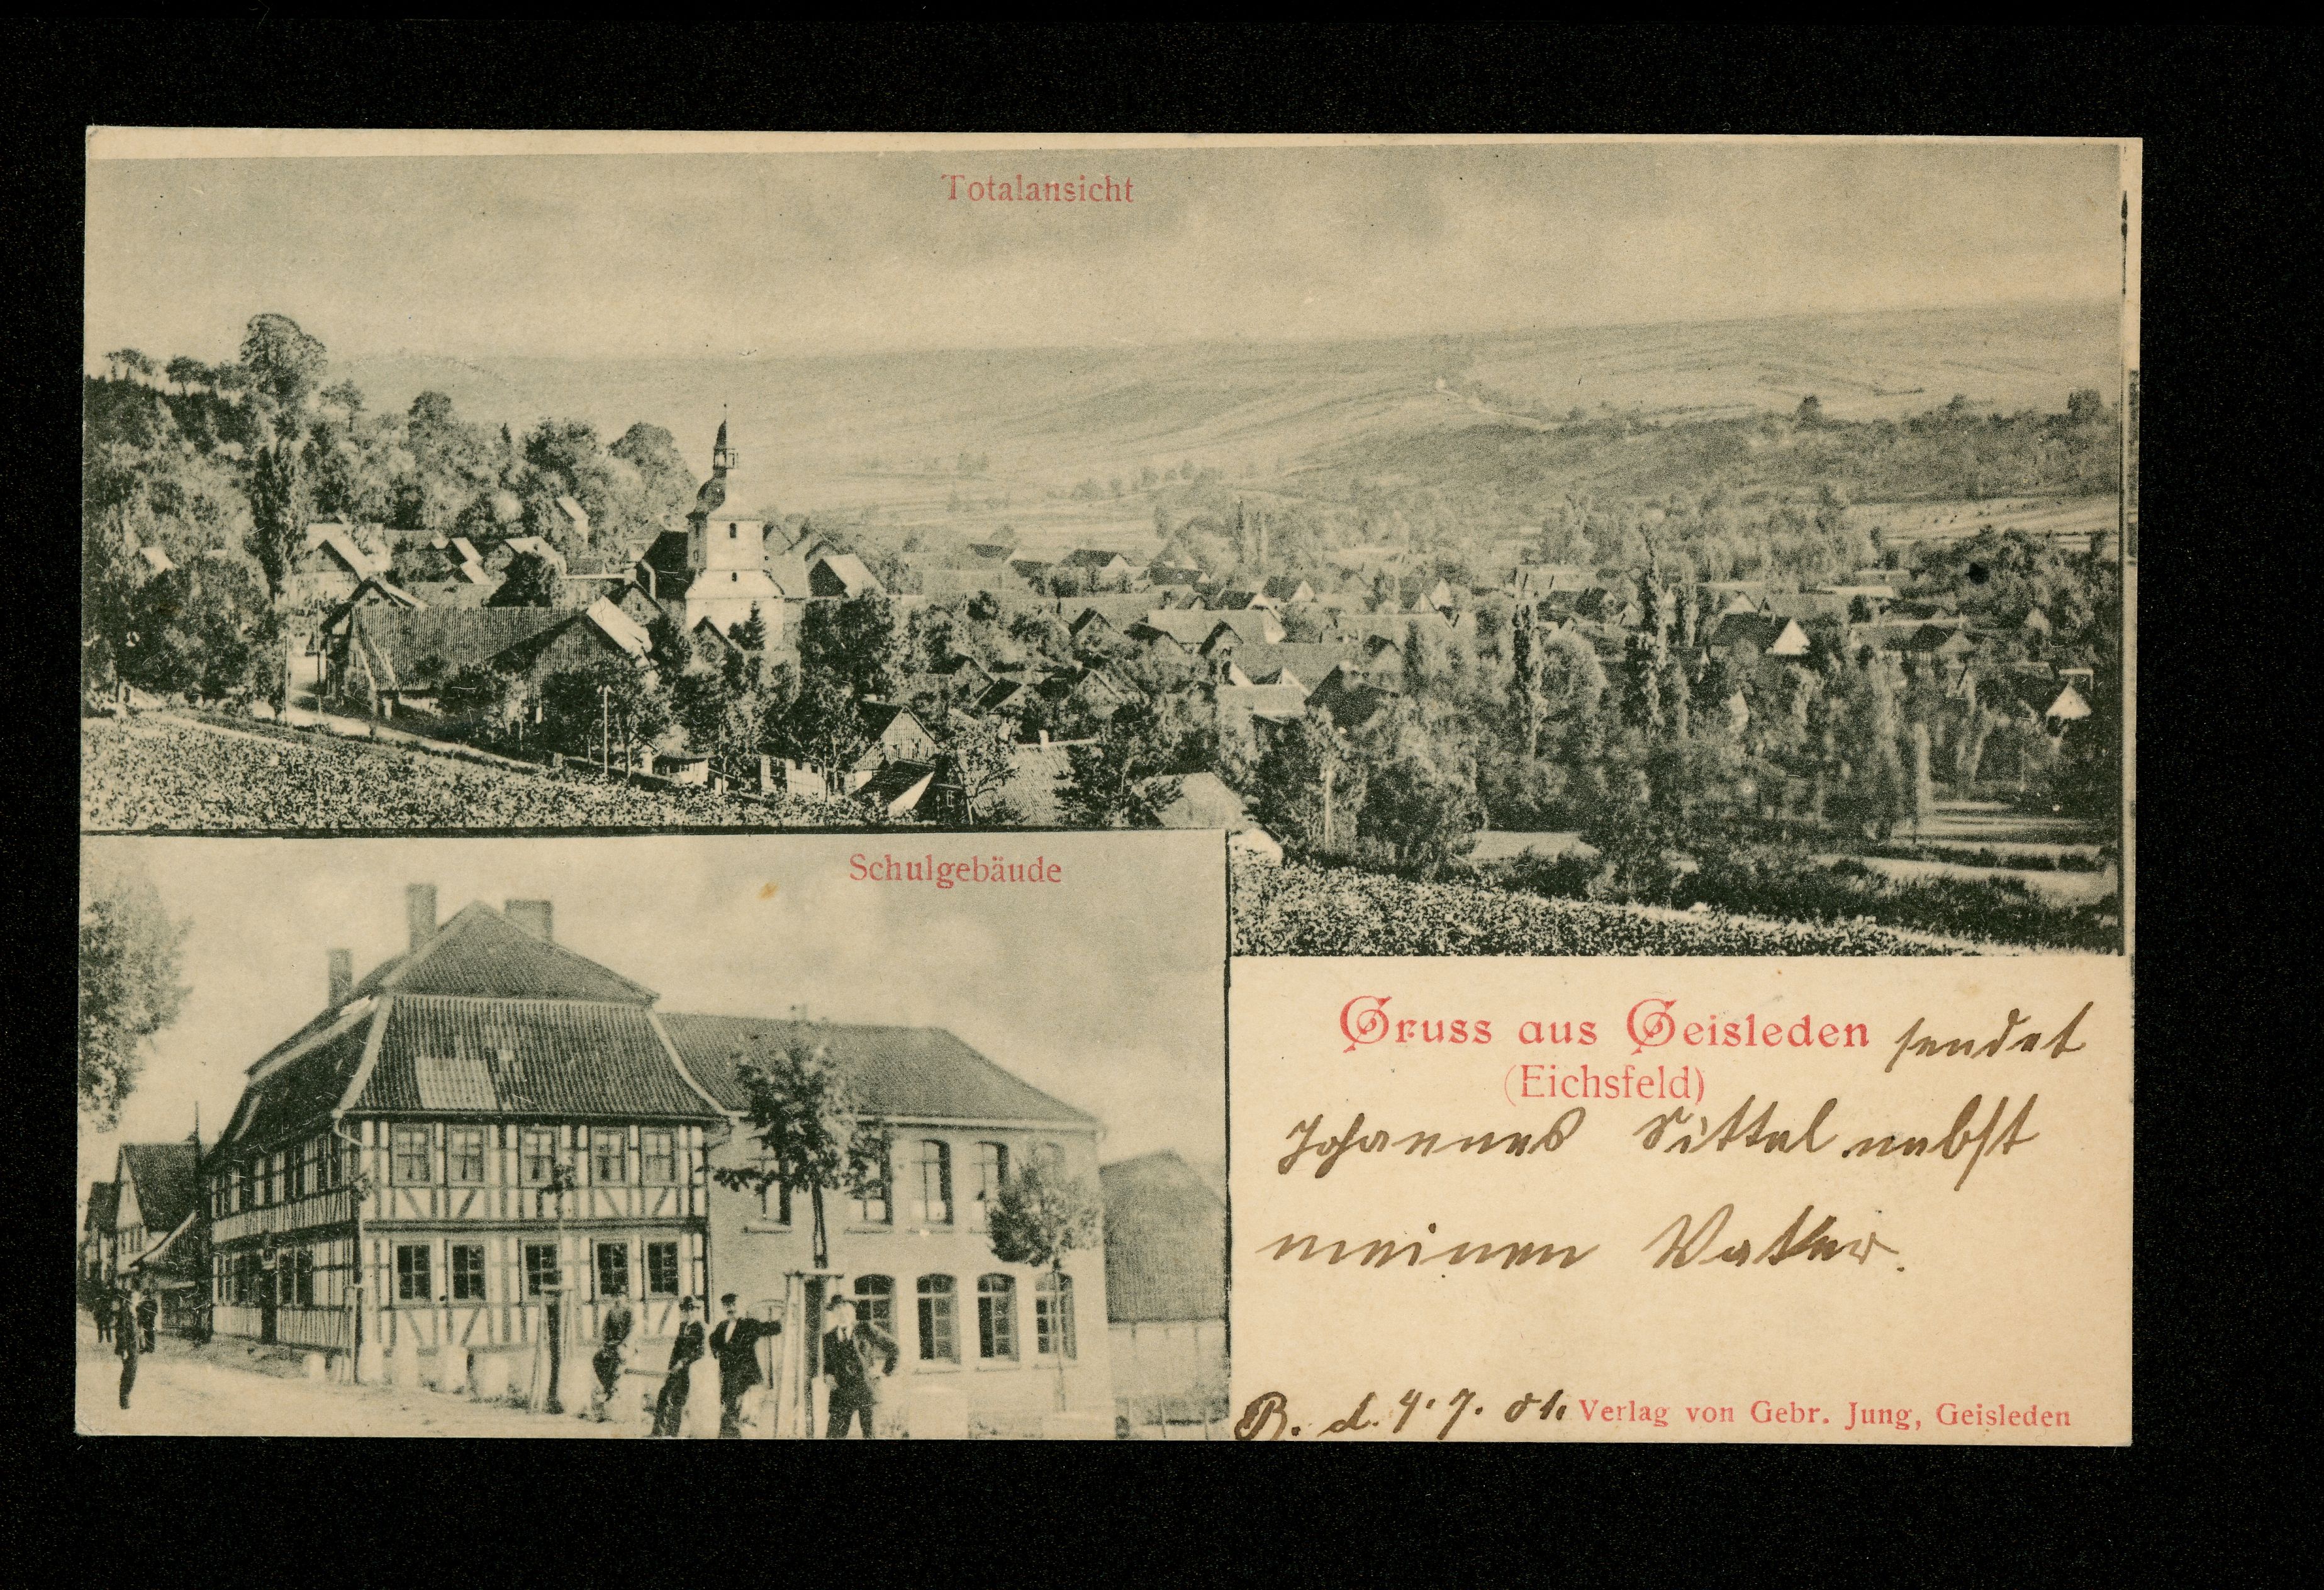 Totalansicht
Schulgebäude
Gruss aus Geisleden sendet
(Eichsfeld)
Johannes Sittel nebst
meinen Vatter.
B. d. 4.7.01. Verlag von Gebr. Jung, Geisleden